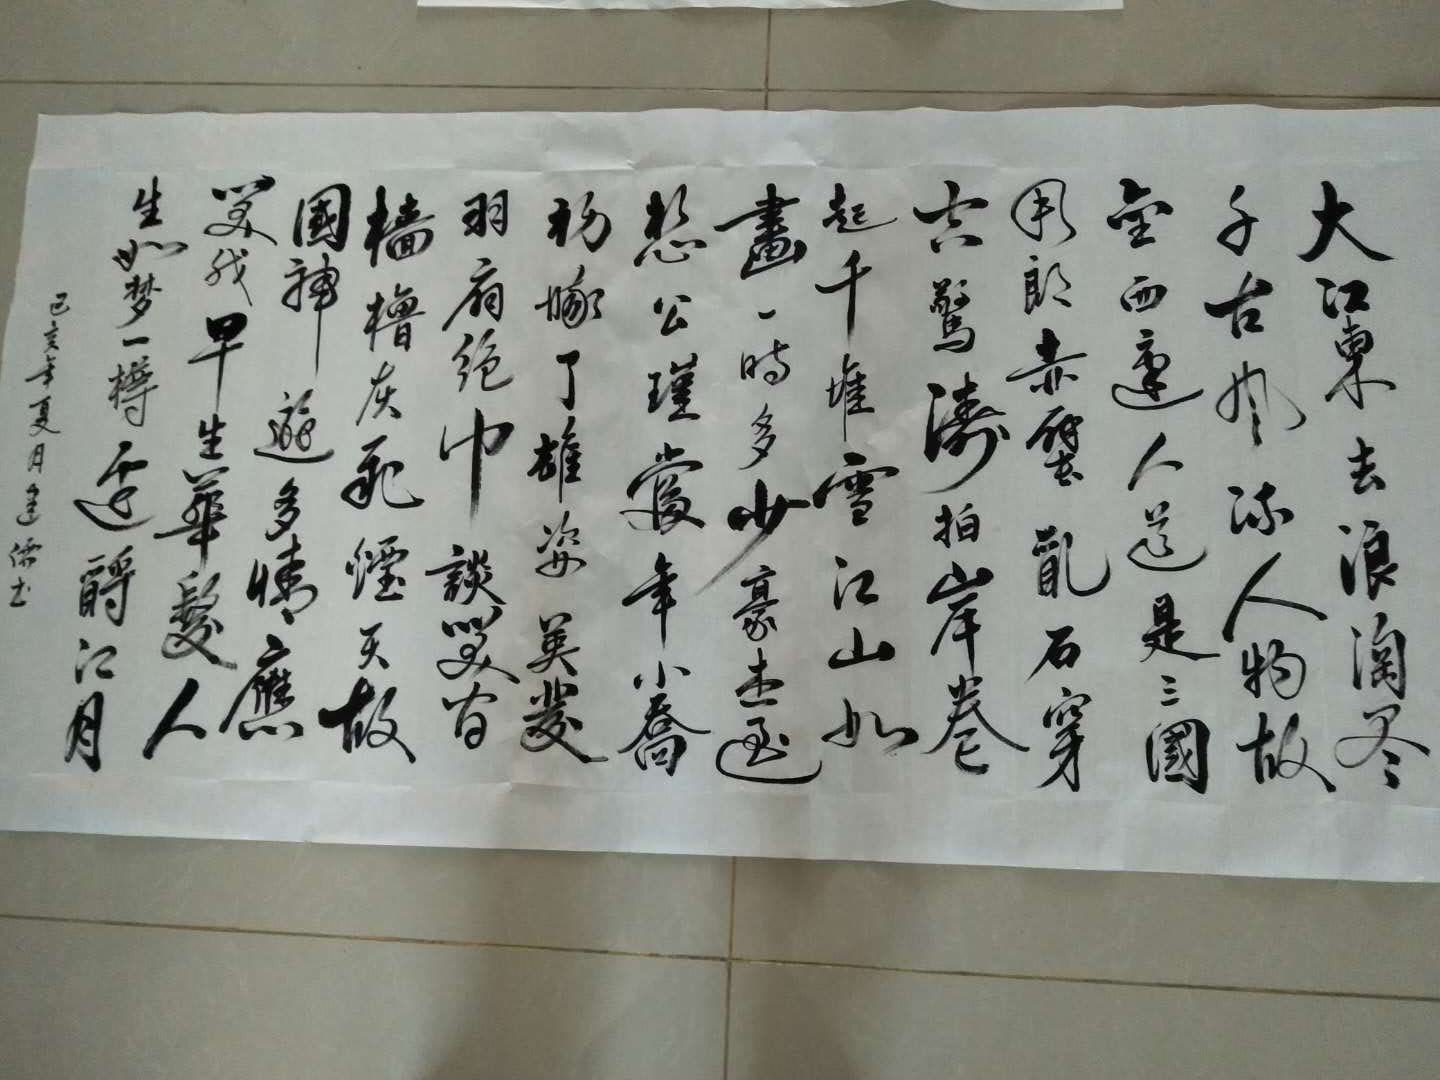 大江東去浪淘尽
千古風流人物故
壘西邊人道是三國
周郎赤壁亂石穿
空驚濤拍岸卷
起千堆雪江山如
畫一時多少豪杰遥
想公瑾當年小喬
初嫁了雄姿英發
羽扇綸巾談笑间
檣櫓灰飛煙灭故
國神遊多情應
笑我早生華髮人
生如梦一樽还酹江月
己亥年夏月建儒书